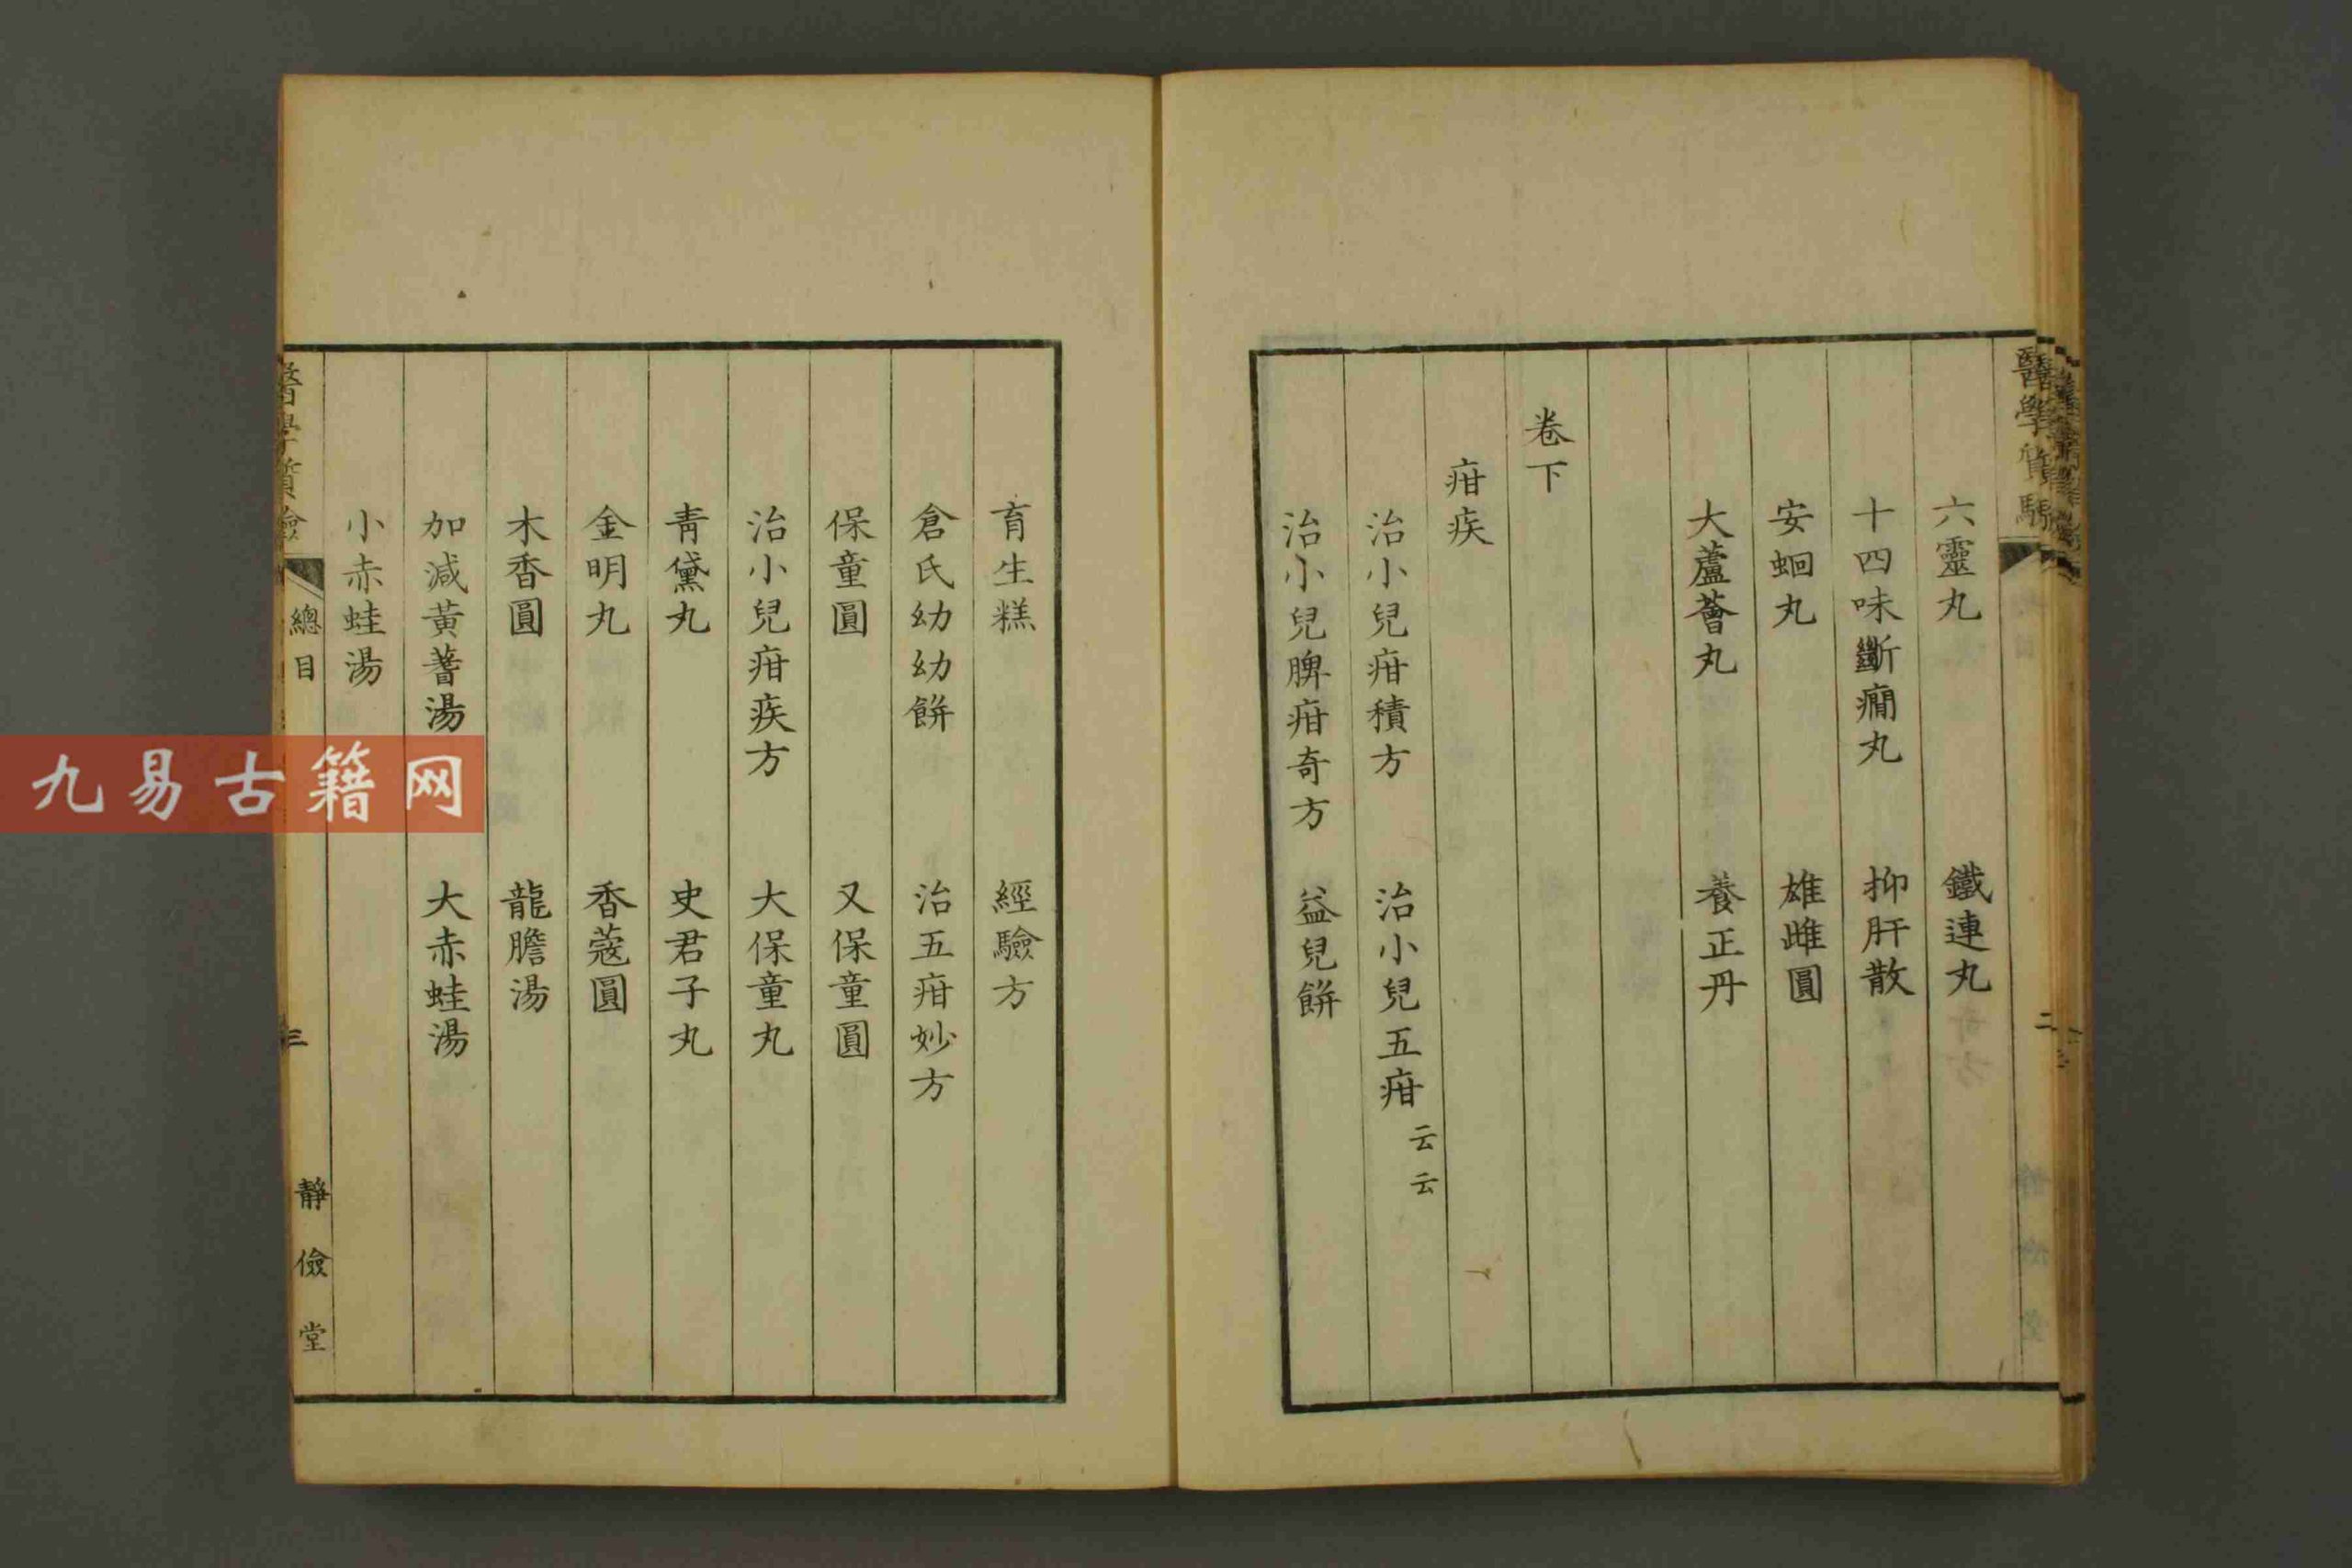 醫學質驗
二
六靈丸 鐵連丸
十四味斷癎丸 抑肝散
安蛔丸 雄雌圓
大蘆薈丸 養正丹
卷下
疳疾
治小兒疳積方 治小兒五疳云云
治小兒脾疳奇方 益兒餅
育生糕 經驗方
倉氏幼幼餅 治五疳妙方
保童圓 又保童圓
治小兒疳疾方 大保童丸
青黛丸 史君子丸
金明丸 香蔻圓
木香圓 龍膽湯
加減黃蓍湯 大赤蛙湯
小赤蛙湯
醫學質驗 總目 三 靜儉堂
九易古籍网